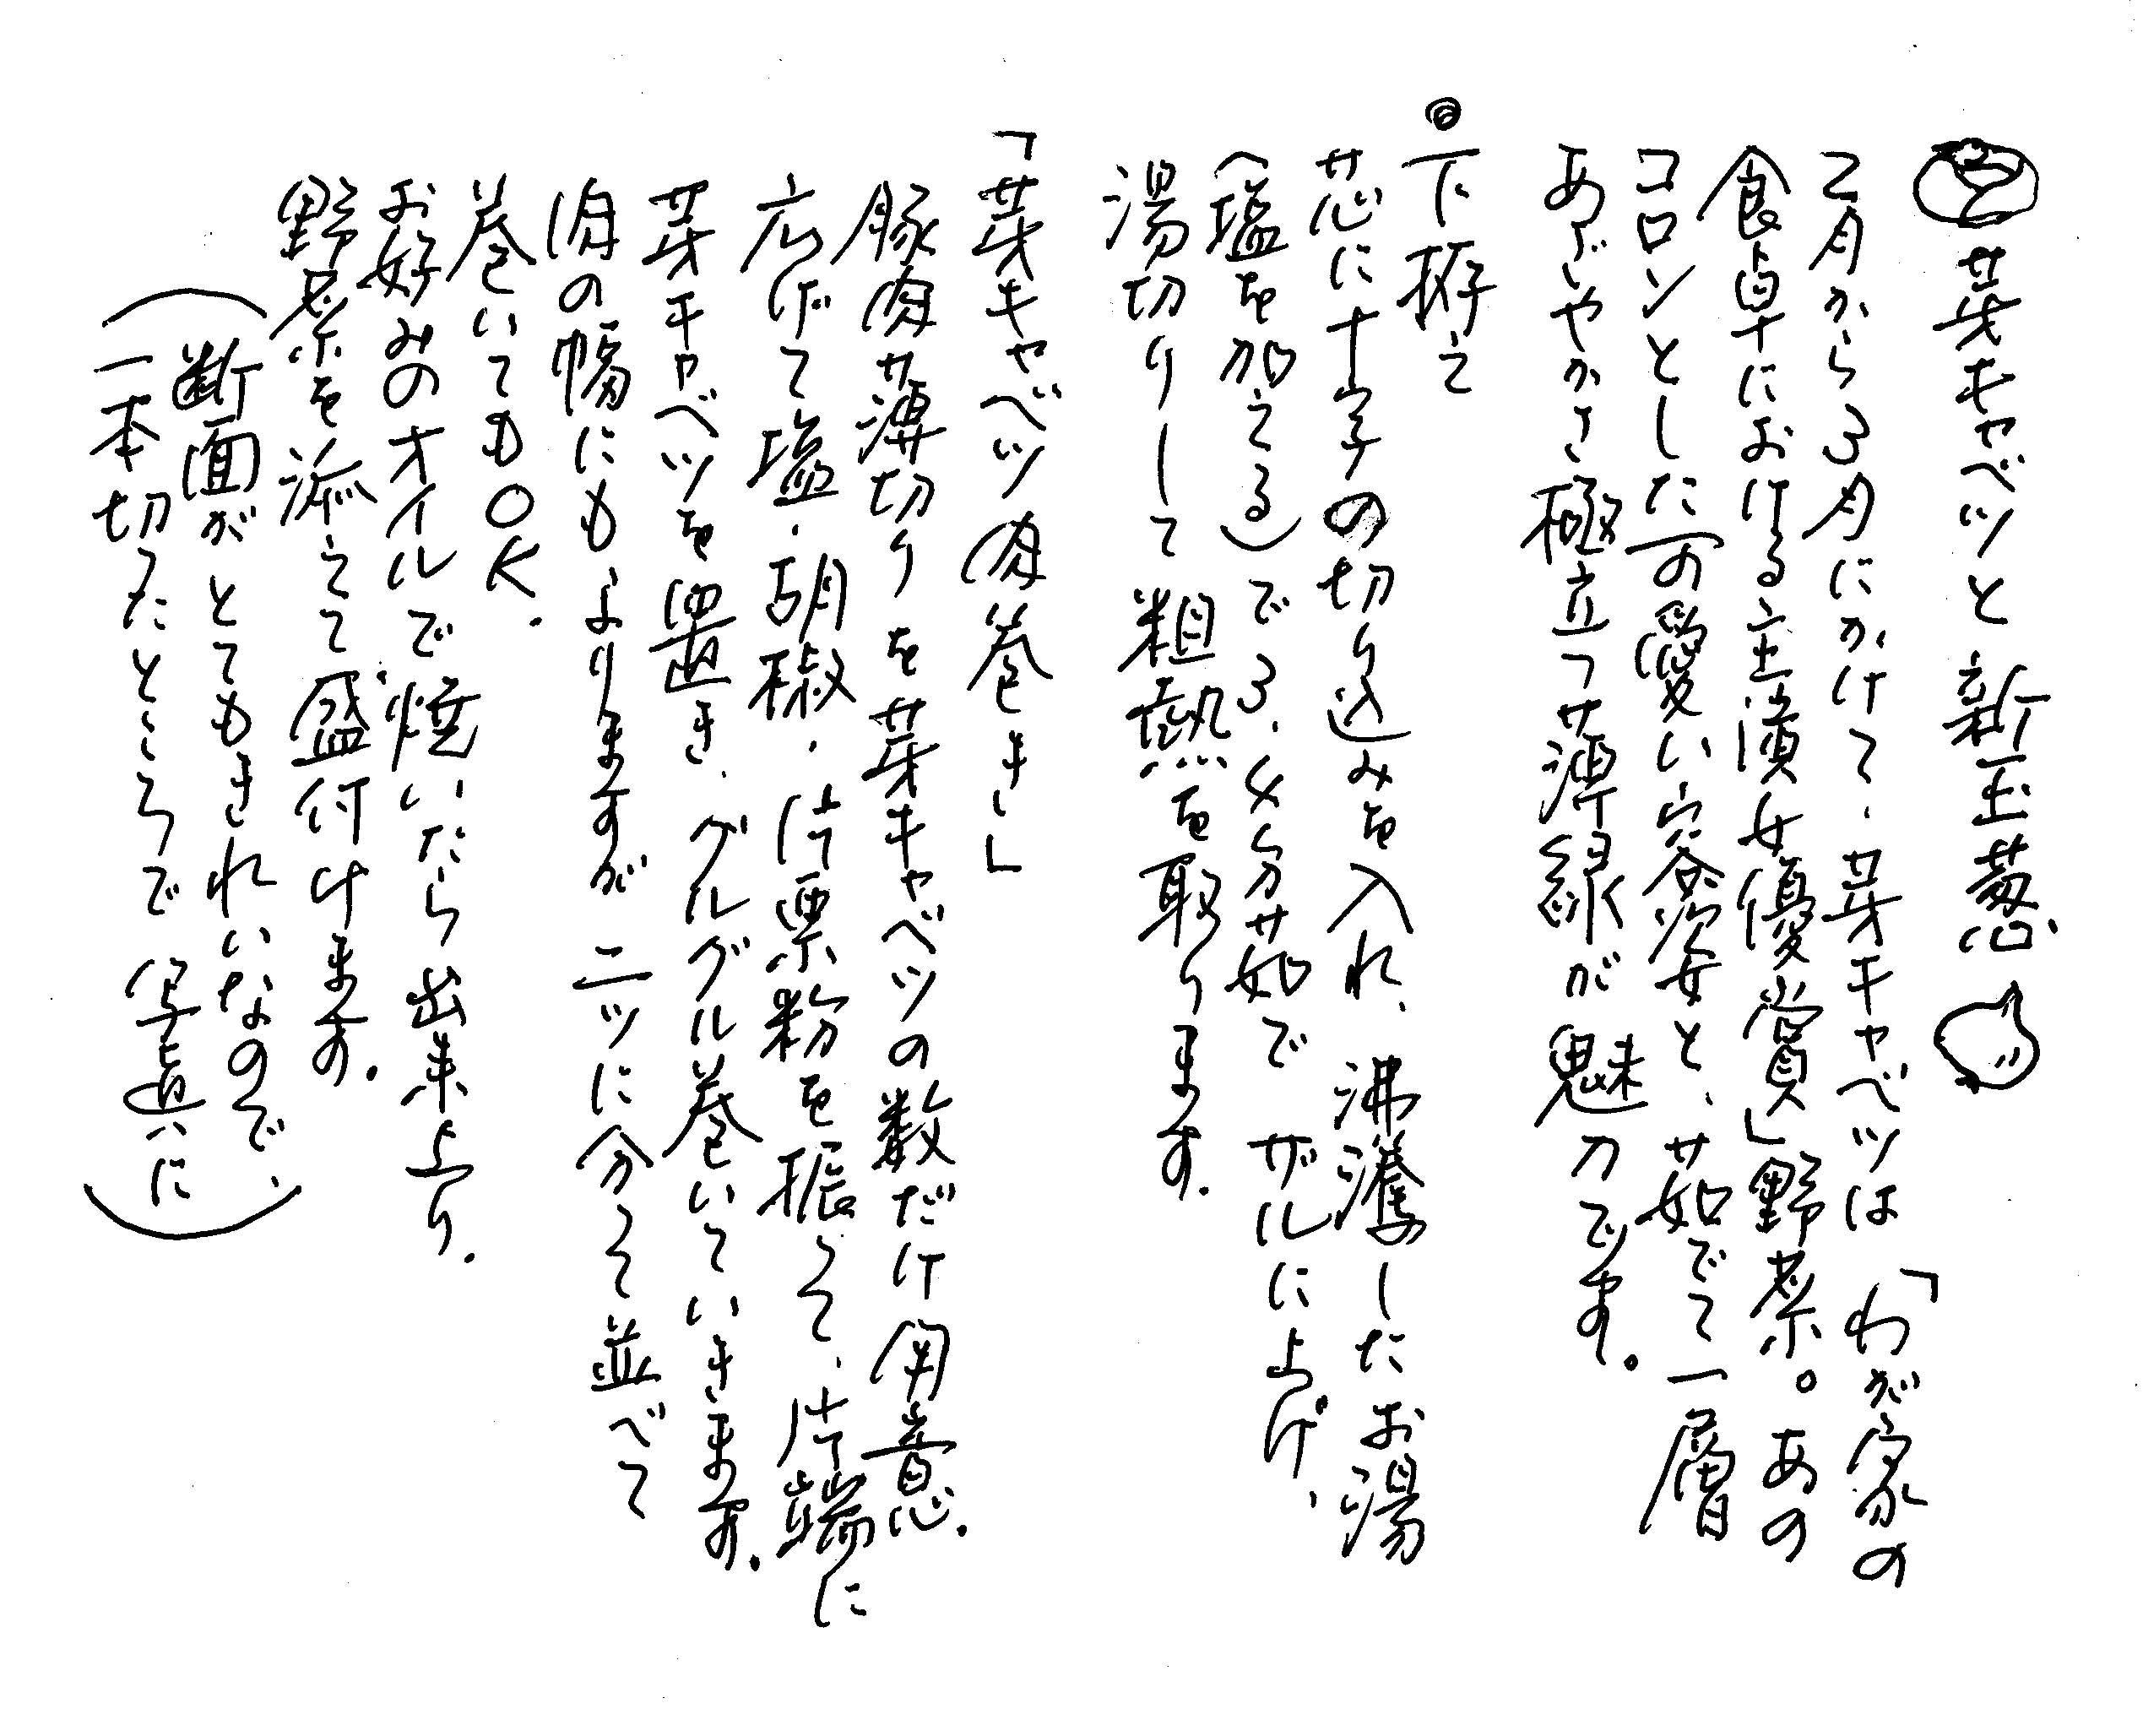 芽キャベツと新玉葱
2月から3月にかけて、芽キャベツは「わが家の
食卓における主演女優賞」野菜。あの
コロンとした可愛い容姿と、茹でて一層
あざやかさ極立つ薄緑が魅力です。
◎下拵え
芯に十字の切り込みを入れ、沸騰したお湯
(塩を加える)で3、4分茹でザルに上げ、
湯切りして粗熱を取ります。
「芽キャベツ肉巻き」
豚肉薄切りを芽キャベツの数だけ用意。
広げて塩・胡椒・片栗粉を振って、片端に
芽キャベツを置き、グルグル巻いていきます。
肉の幅にもよりますが二ツに分くて並べて
巻いてもOK.
お好みのオイルで焼いたら出来上り.
野菜を添えて盛付けます.
(断面がとてもきれいなので、
一本切ったところで写真に)